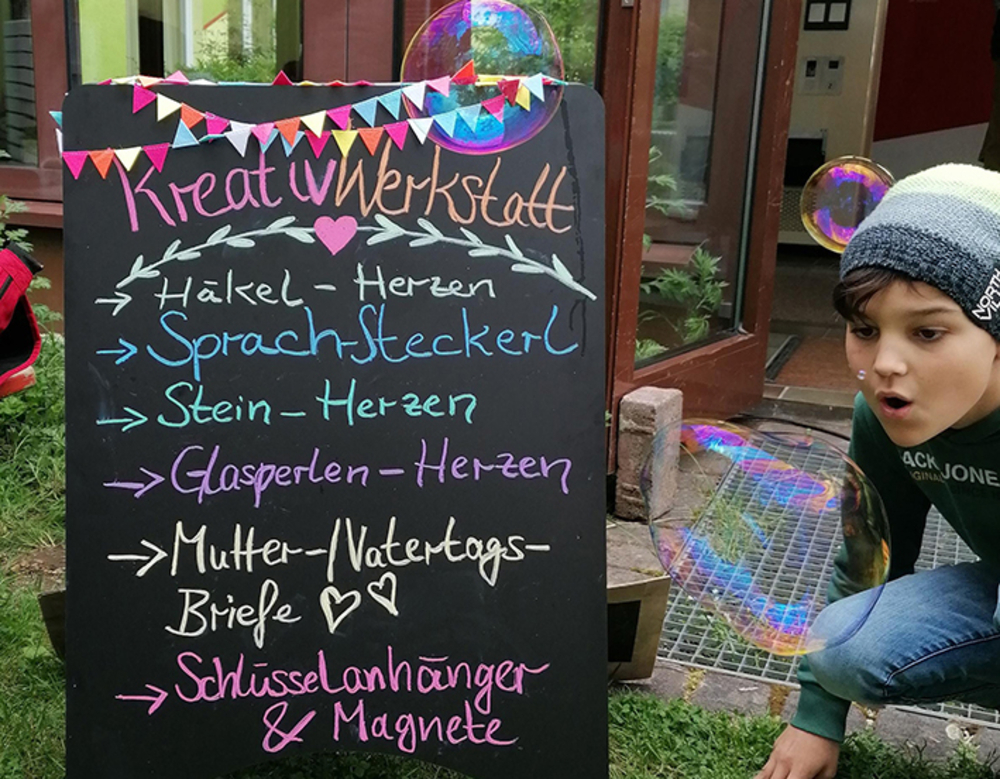 KreativWerkstatt
→ Häkel - Herzen
→ Sprach-Steckerl
→ Stein - Herzen
→ Glasperlen - Herzen
→ Mutter-/Vatertags-
Briefe ♡♡
→ Schlüsselanhänger
& Magnete
NORTH
ACK JONE